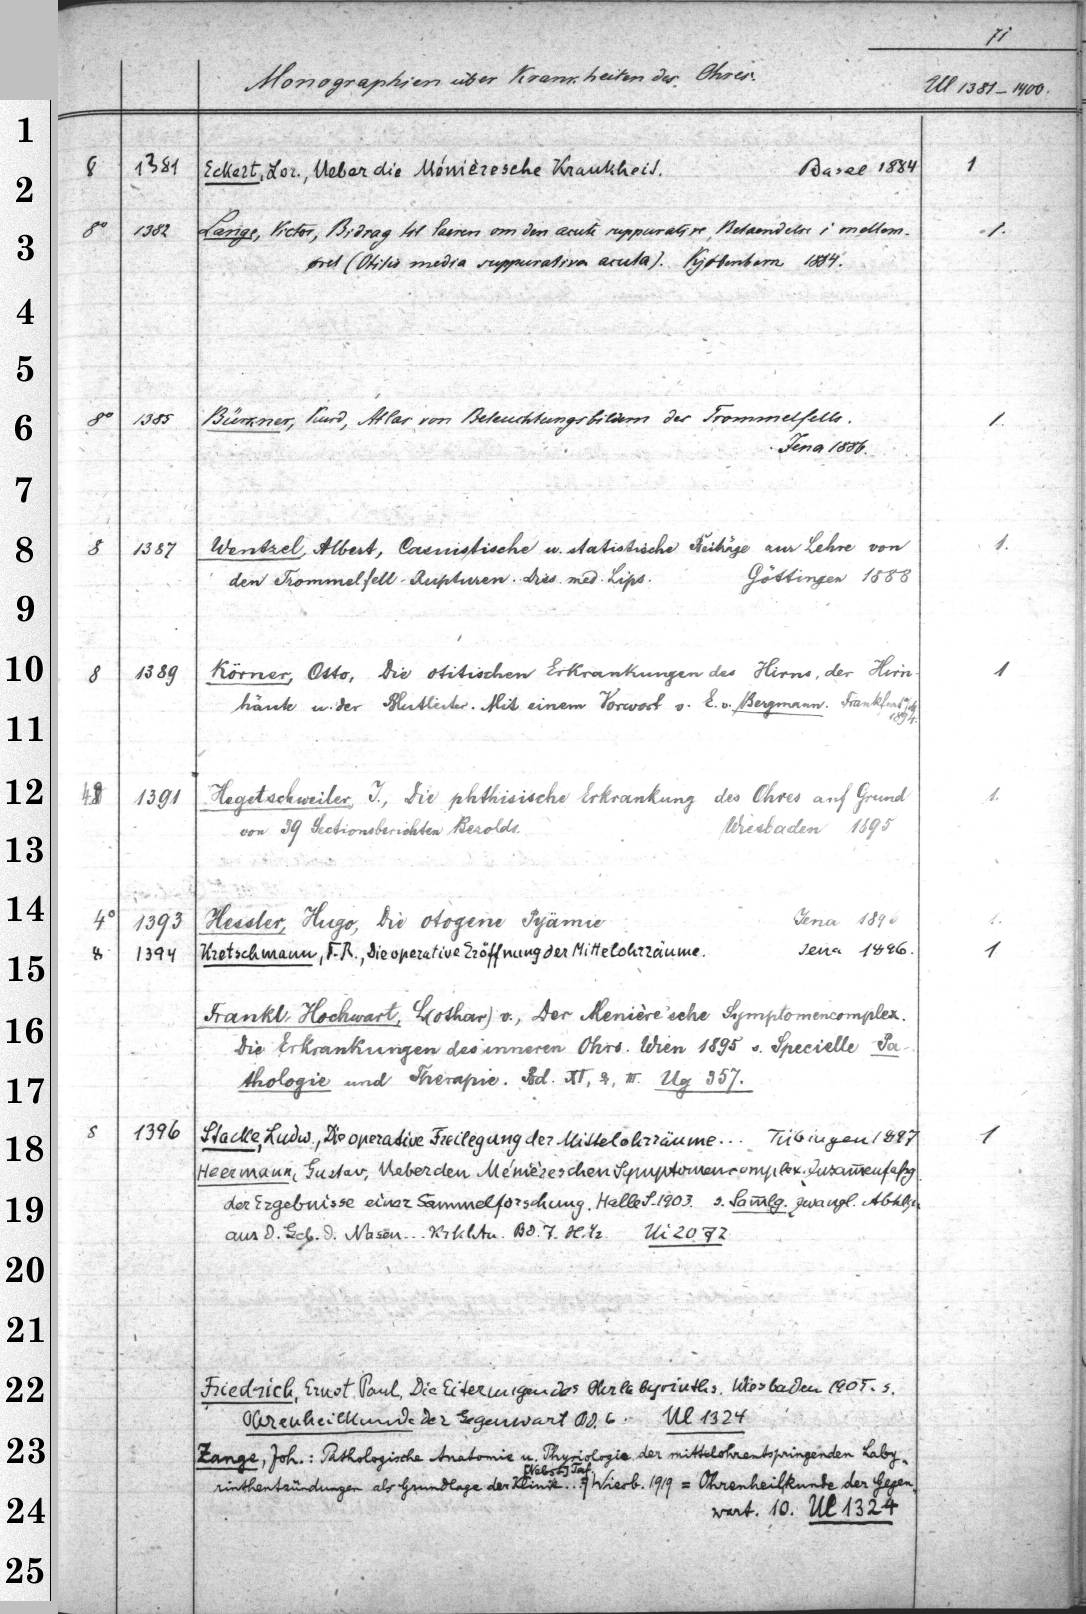 71
Monographien über Krankheiten des Ohres. Ul 1381–1400.
1
2
3
4
5
6
7
8
9
10
11
12
13
14
15
16
17
18
19
20
21
22
23
24
25
8 1381 Eckert, Lor., Ueber die Ménièresche Krankheit. Basel 1884 1
8° 1382 Lange, Victor, Bidrag til laeren om den acute suppurative Betaendelse i mellem- 1.
øret (Otitis media suppurativa acuta). Kjøbenhavn 1884.
8° 1385 Bürkner, Kurd, Atlas von Beleuchtungsbildern des Trommelfells. 1.
Jena 1886.
8 1387 Wentzel, Albert, Casuistische u. statistische Beiträge zur Lehre von 1.
den Trommelfell-Rupturen. Diss. med. Lips. Göttingen 1888
8 1389 Körner, Otto, Die otitischen Erkrankungen des Hirns, der Hirn- 1
häute u. der Blutleiter. Mit einem Vorwort v. E. v. Bergmann. Frankfurt 1894.
1391 Hegetschweiler, J., Die phthisische Erkrankung des Ohres auf Grund 1.
von 39 Sectionsberichten Bezolds. Wiesbaden 1895
4° 1393 Hessler, Hugo, Die otogene Pyämie Jena 1896 1.
8 1394 Kretschmann, F. R., Die operative Eröffnung der Mittelohrräume. Jena 1896. 1
Frankl-Hochwart, L(othar) v., Der Menière'sche Symptomencomplex.
Die Erkrankungen des inneren Ohrs. Wien 1895 s. Specielle Pa-
thologie und Therapie. Bd. XI, 2, III. Ug 357.
8 1396 Stacke, Ludw., Die operative Freilegung der Mittelohrräume... Tübingen 1897 1
Heermann, Gustav, Ueber den Ménièreschen Symptomencomplex. Zusam̅enfassg.
der Ergebnisse einer Sammelforschung. Halle S. 1903. s. Sam̅lg. zwangl. Abhlgn
aus d. Geb. d. Nasen... Krkhtn. Bd. 7. H. 1/2 Ui 2072
Friedrich, Ernst Paul, Die Eiterungen des Ohrlabyrinths. Wiesbaden 1905. s.
Ohrenheilkunde der Gegenwart Bd. 6. Ul 1324
Zange, Joh.: Pathologische Anatomie u. Physiologie der mittelohrentspringenden Laby-
[Nebst] Taf.
rinthentzündungen als Grundlage der Klinik... Wiesb. 1919 = Ohrenheilkunde der Gegen-
wart. 10. Ul 1324